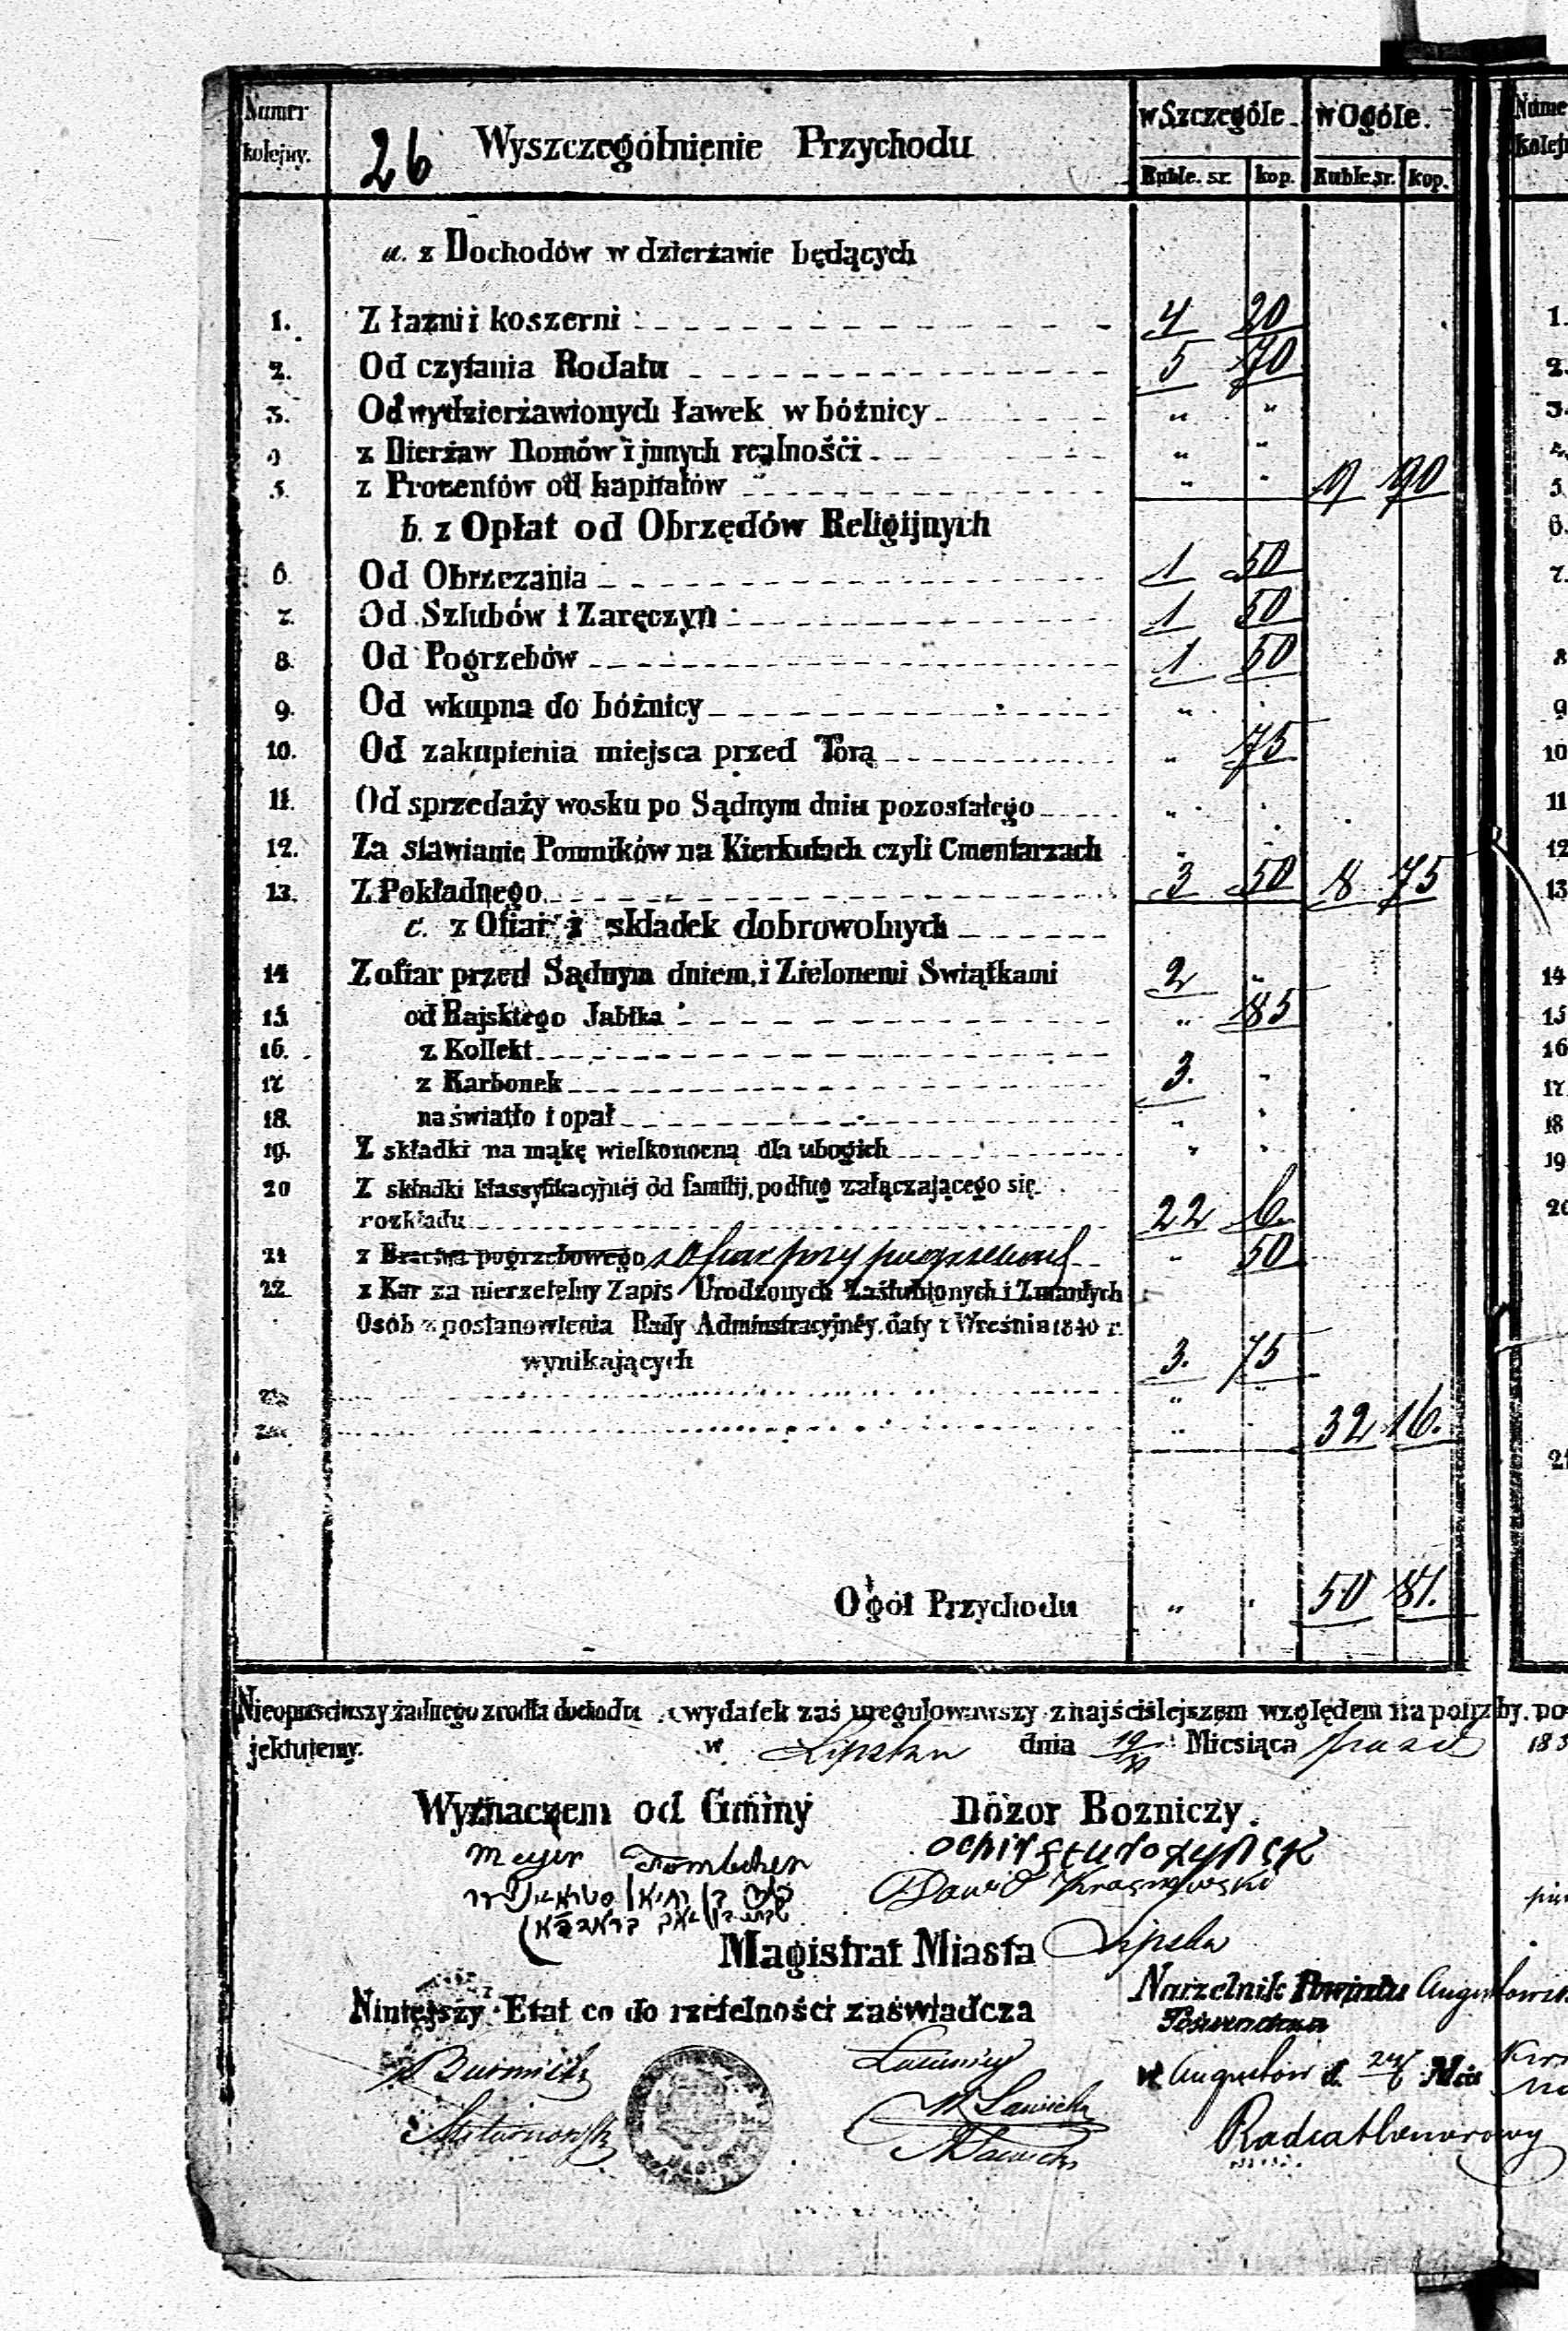 Numer kolejny.
26 Wyszczegółnienie Przychodu
w Szczególe. w Ogóle.
Ruble. sr. kop. Ruble sr. kop.
a. z Dochodów w dzierżawie będących
1. Z łaźni i koszerni 4 20
2. Od czytania Rodału 5 70
3. Od wydzierżawionych ławek w bóźnicy " "
4 z Dierżaw Domów i jnnych realnośći " "
5. z Procentów od kapitałów " " 9 90
b. z Opłat od Obrzędów Religijnych
6. Od Obrzezania 1 50
7. Od Szlubów i Zaręczyn 1 50
8. Od Pogrzebów 1 50
9. Od wkupna do bóżnicy "
10. Od zakupienia miejsca przed Torą " 75
11. Od sprzedaży wosku po Sądnym dniu pozostałego "
12. Za stawianie Pomników na Kierkutach czyli Cmentarzach "
13. Z Pokładnego 3 50 8 75
c. z Ofiar i składek dobrowolnych
14 Z ofiar przed Sądnym dniem, i Zielonemi Swiątkami 2 "
15 od Rajskiego Jabłka " 85
16. z Kollekt
17 z Karbonek 3. "
18. na światło i opał "
19. Z składki na mąkę wielkonocną dla ubogich " "
20 Z składki klassyfikacyjnéj od familij, podług załączającego się
rozkładu 22 6.
21 z Bractwa pogrzebowego z Ofiar przy pogrzebach " 50
22 z Kar za nierzetelny Zapis Urodzonych Zaślubionych i Zmarłych
Osób z postanowienia Rady Adminstracyjnéy, daty 1 Wreśnia 1840 r.
wynikających 3. 75
23 " "
24 " " 32 16.
Ogół Przychodu " " 50 81.
Nieopuściwszy żadnego zrodła dochodu a wydatek zaś uregulowawszy z najściślejszem względem na potrzeby. po-
jektujemy. w Lipsku dnia 19/ Miesiąca
Wyznaczeni od Gminy Dozor Bozniczy.
Meyer
Dawid Krasnowski
Magistrat Miasta Lipska
Niniejszy Etat co do rzetelności zaświadcza
Naczelnik Powiatu Augustows
Burmistrz
Ławnicy
w Augustow d. Mca
M Sawicki
Radca Honorowy